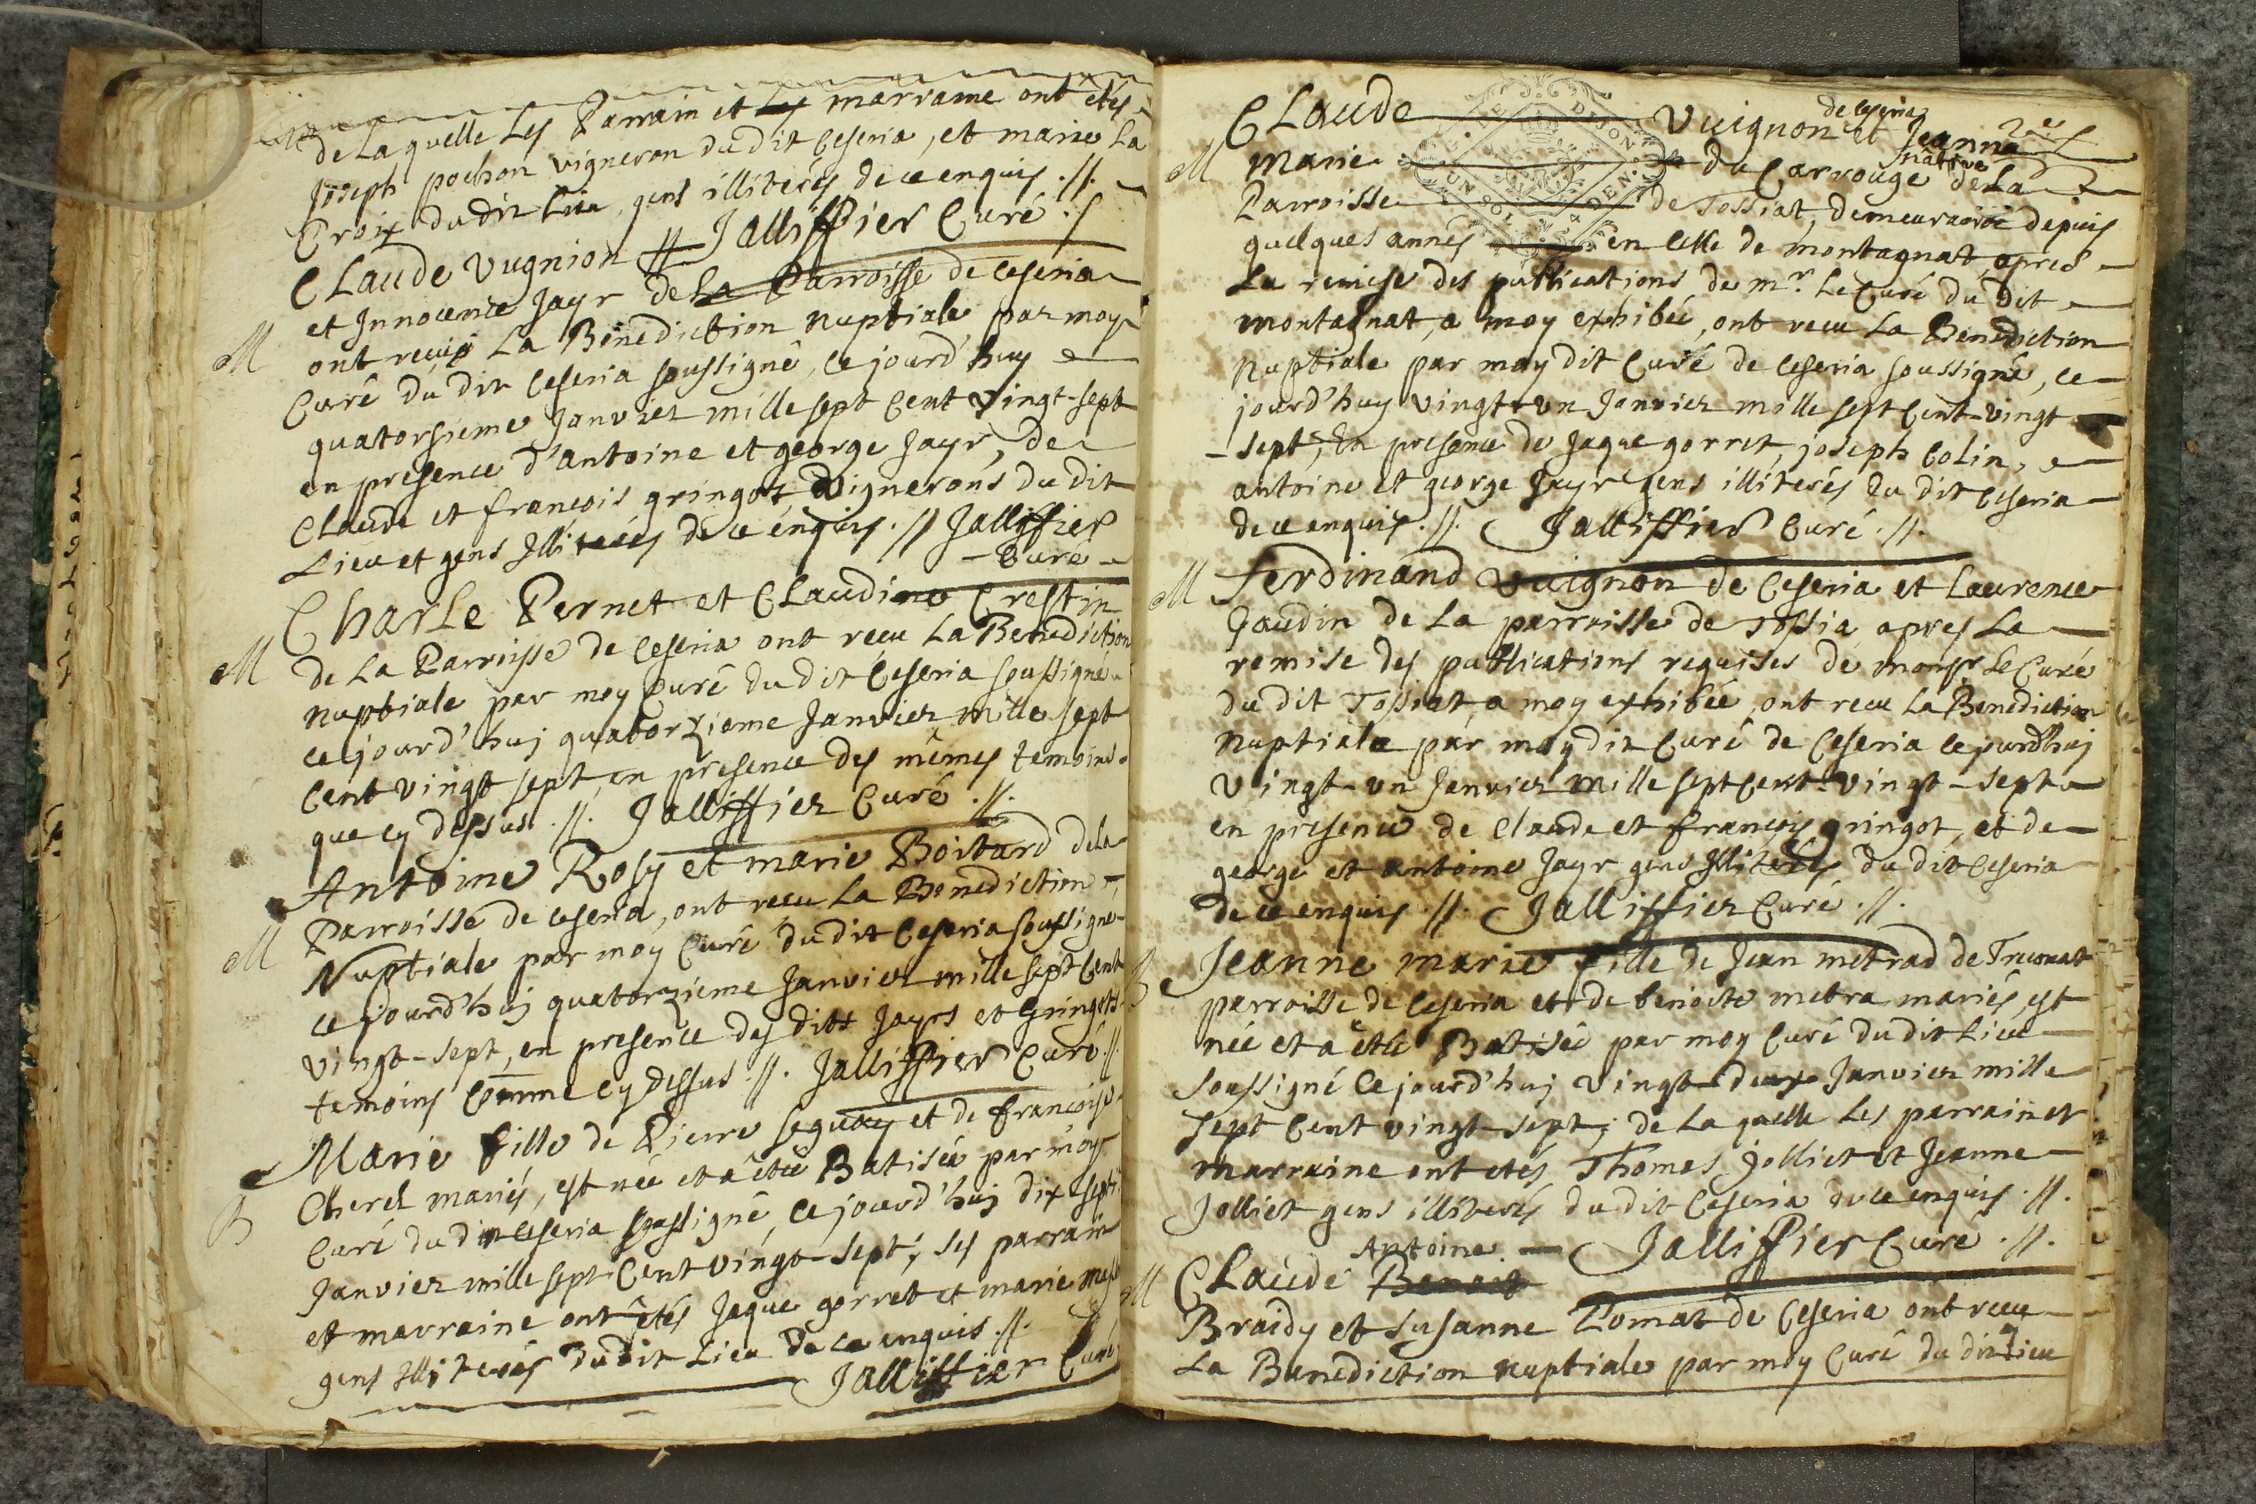 de La quelle Les Parrain et marraine ont etés
Joseph pochon vigneron du dit Ceseria, et marie La
Croix du dit Lieu, gens illiterés de ce enquis .//.
Claude Vugnion // Jalliffier Curé ./
et Innocence Jayr de La Parroisse de Ceseria
M ont reçu La Benediction Nuptiale par moy
Curé du dit Ceseria soussigné, ce jourd'huy
quatorsieme Janvier mille sept Cent Vingt-sept
en presence d'antoine et george Jayr, de
Claude et françois gringoz Vignerons du dit
Lieu et gens Illiterés de ce énquis .// Jalliffier
Curé
Charle Pernet et Claudine Crestin
M de La Parroisse de Ceseria ont recu La Benediction
Nuptiale par moy Curé du dit Ceseria soussigné
ce jourd'huj quatorzieme Janvier mille sept
Cent vingt sept, en presence des mêmes temoins
que cy dessus .//. Jalliffier Curé .//.
Antoine Rosy et marie Boitard de La
M Parroisse de Ceseria, ont recu La Benediction
Nuptiale par moy Curé du dit Ceseria soussigné
ce jourd'huj quatorzieme Janvier mille sept Cent
vingt-sept, en presence des dits Jayrs et Gringots
temoins Comme cy dessus .//. Jalliffier Curé .//.
Marie fille de Pierre Seguoy et de francoise
B Cherel mariés, est née et a êtée Batisée par moy
Curé du dit Ceseria soussigné, ce jourd'huj dix sept
Janvier mille sept Cent vingt-sept; ses parrain
et marraine ont êtés Jaque gorret et marie
gens Illiterés du dit Lieu de ce enquis .//.
Jalliffier Curé
Claude Vuignon de Ceseria et Jeanne
M Marie du Carrouge nâtive de La
Parroisse de Tossiat, demeurante depuis
quelques annés en celle de montagnat, apres
La remise des publications de mr. Le Curé du dit
montagnat, a moy exhibée, ont recu La Benediction
Nuptiale par moy dit Curé de Ceseria soussigné, ce
jourd'huy vingt un Janvier mille sept Cent-vingt
-sept, En presence de Jaque gorret, joseph Colin,
antoine et george Jayr gens illiterés du dit Ceseria
de ce enquis .//. Jalliffier Curé .//.
M Ferdinand Vuignon de Ceseria et Laurence
Gaudin de La parroisse de Tossia apres La
remise des publications requises de monsr Le Curé
du dit Tossiat, a moy exhibée, ont recu La Benediction
Nuptiale par moy dit Curé de Ceseria ce jourd'huj
vingt-un Janvier mille sept Cent-vingt-sept
en presence de Claude et francois gringot, et de
george et antoine Jayr gens Illiterés du dit Ceseria
de ce enquis .//. Jalliffier Curé .//.
B Jeanne marie fille de Jean metrad de Treconat
parroisse de Ceseria et de benoite metra mariés, est
née et a êtée Batisée par moy Curé du dit Lieu
soussigné ce jourd'huj vingt-deux Janvier mille
sept Cent vingt-sept; de La quelle Les parrain et
marraine ont etés Thomas Jolliet et Jeanne
Jolliet gens illiterés du dit Ceseria de ce enquis .//.
Jalliffier Curé .//.
M Claude Antoine Benoit
Braidy et Susanne Pomat de Ceseria ont recu
La Benediction Nuptiale par moy Curé du dit Lieu